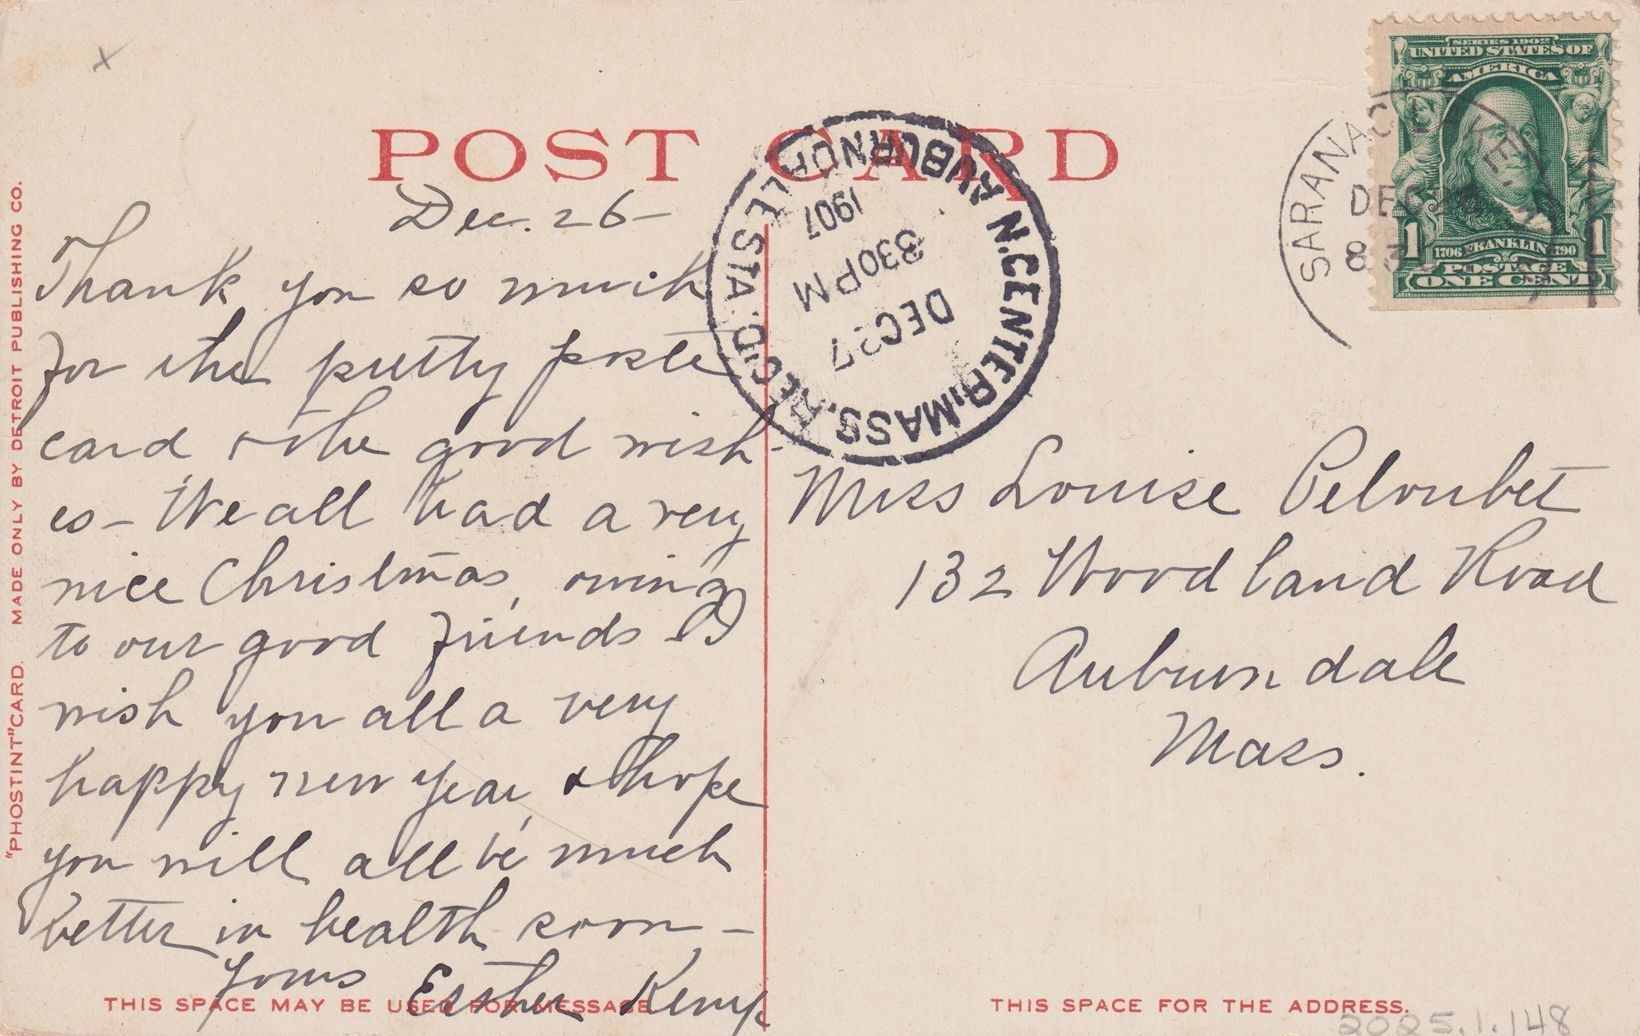 POST CARD
"PHOSTINT" CARD. MADE ONLY BY DETROIT PUBLISHING CO.
Dec. 26 -
Thank you so much
for the pretty poste
card, & the good wish-
es - We all had a very
nice Christmas, owing
to our good friends. I
wish you all a very
happy new year, & hope
you will all be much
better in health soon -
Yours Esther Kemp
THIS SPACE MAY BE USED FOR MESSAGE
N. CENTER, MASS. REC'D.
AUBURNDALE STA.
DEC 27
330 PM
1907
SARANAC LAKE, N.Y.
DEC 26
8 30
SERIES 1902
UNITED STATES OF
AMERICA
1706 FRANKLIN 1790
1 POSTAGE 1
ONE CENT
Miss Louise Peloubet
132 Woodland Road
Auburndale
Mass.
THIS SPACE FOR THE ADDRESS.
2025.1.148